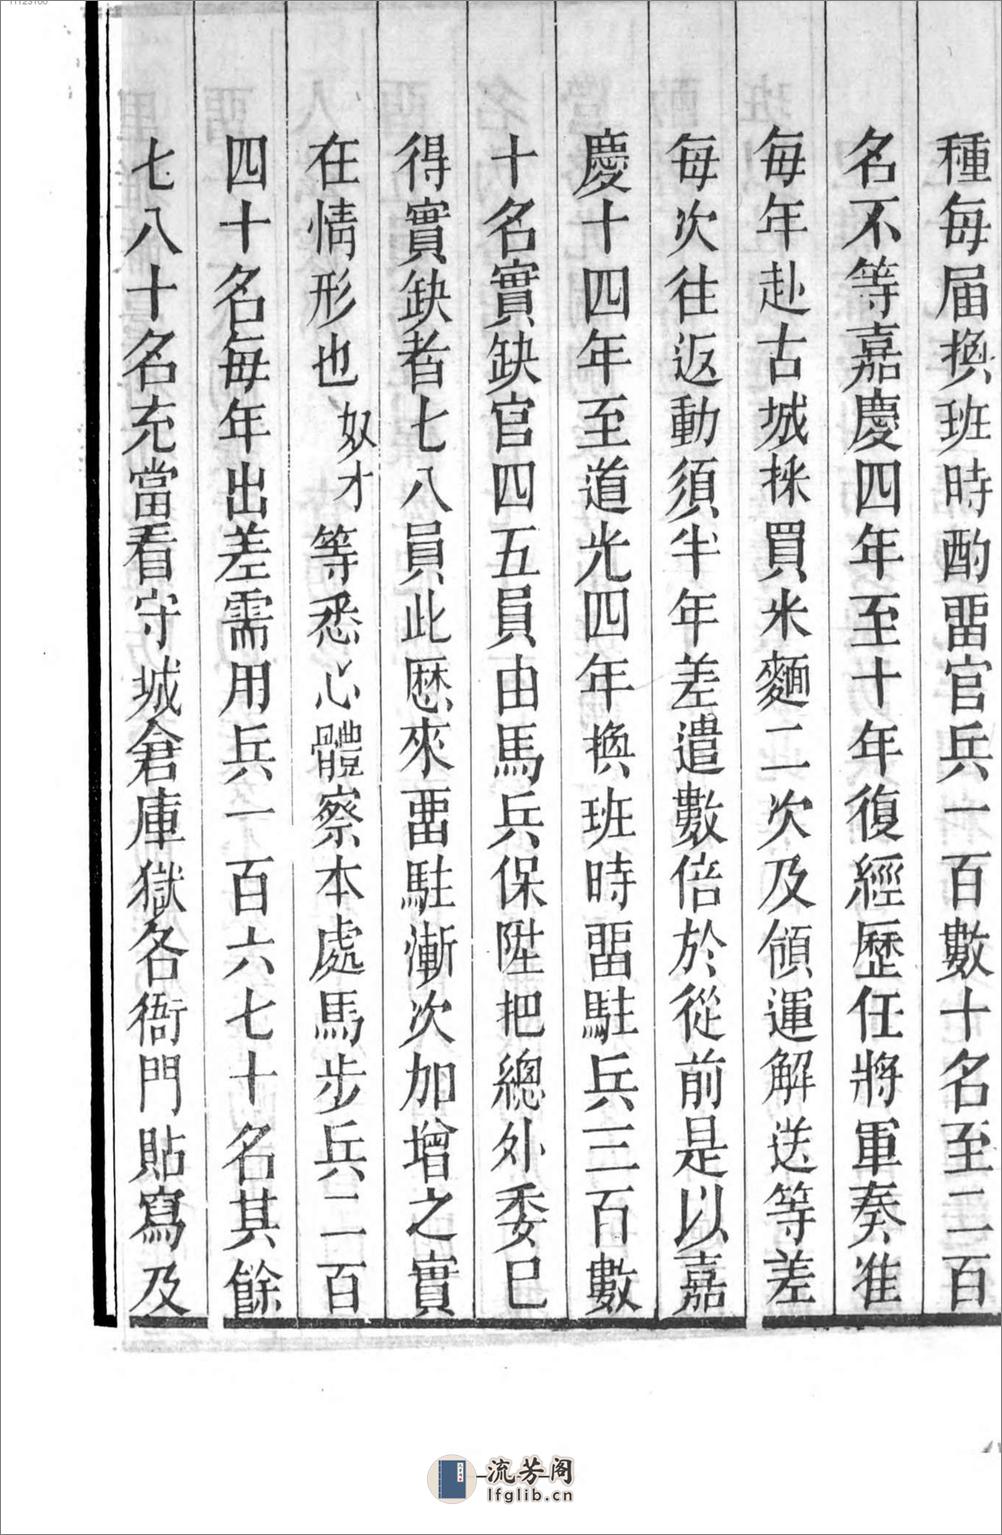 種每届換班時酌畱官兵一百數十名至二百
名不等嘉慶四年至十年復經歷任將軍奏准
每年赴古城採買米麵二次及領運解送等差
每次往返動須半年差遣數倍於從前是以嘉
慶十四年至道光四年換班時畱駐兵三百數
十名實缺官四五員由馬兵保陞把總外委已
得實缺者七八員此歷來畱駐漸次加增之實
在情形也奴才等悉心體察本處馬步兵二百
四十名每年出差需用兵一百六七十名其餘
七八十名充當看守城倉庫獄各衙門貼寫及
流芳阁
lfglib.cn